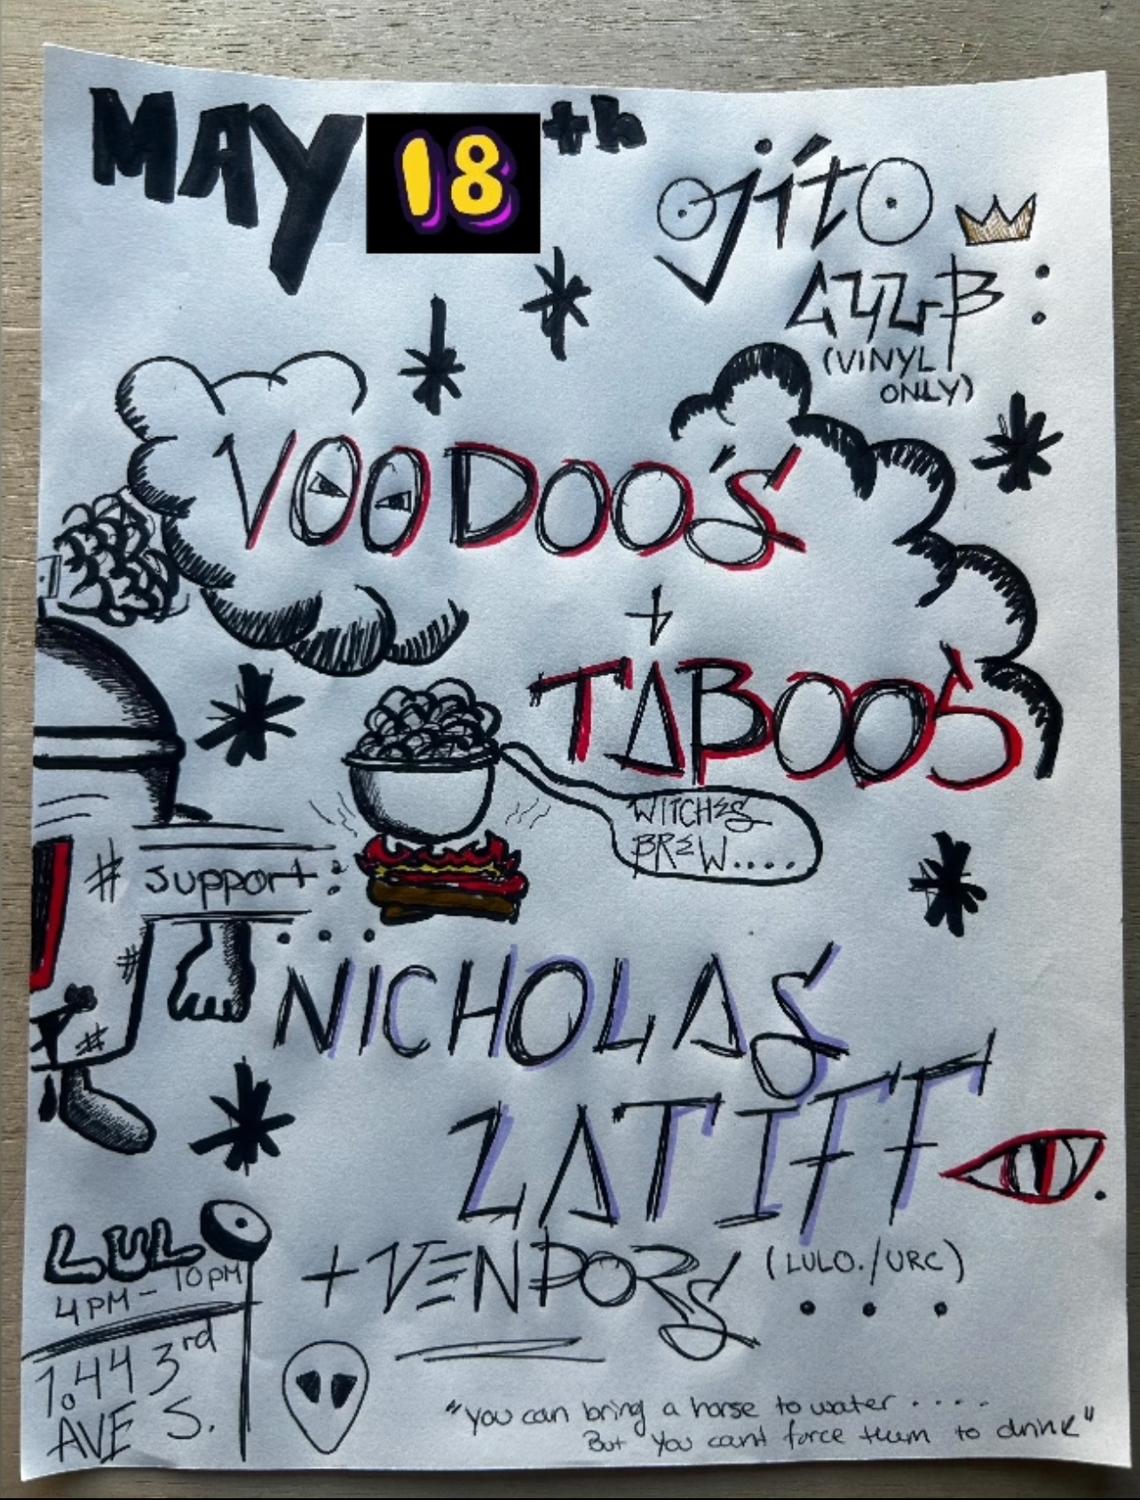 MAY 18th
ojito
(VINYL
ONLY)
VOODOO'S
+
TABOO'S
WITCHES
BREW....
# support:
...
NICHOLAS
LATIFF
+ VENDORS (LULO./URC)
LULO
4PM - 10PM
1443 3rd
AVE S.
"you can bring a horse to water ....
But you cant force them to drink"